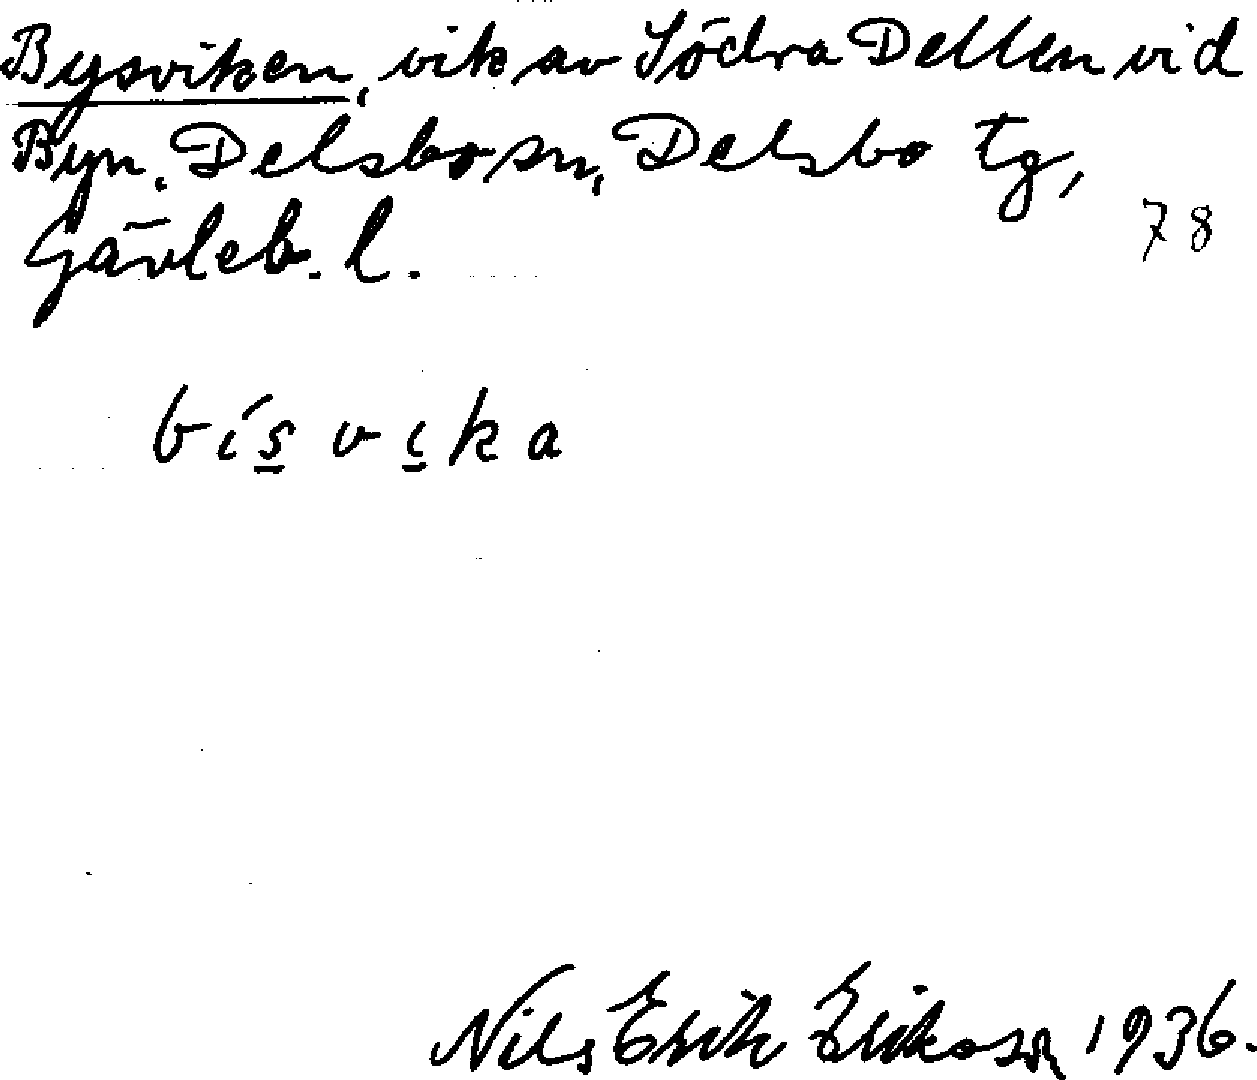 Bysviken, vik av Södra Dellen vid
Byn, Delsbo sn, Delsbo tg,
78
Gävleb. l.
bís vika
Nils Erik Eriksson 1936.